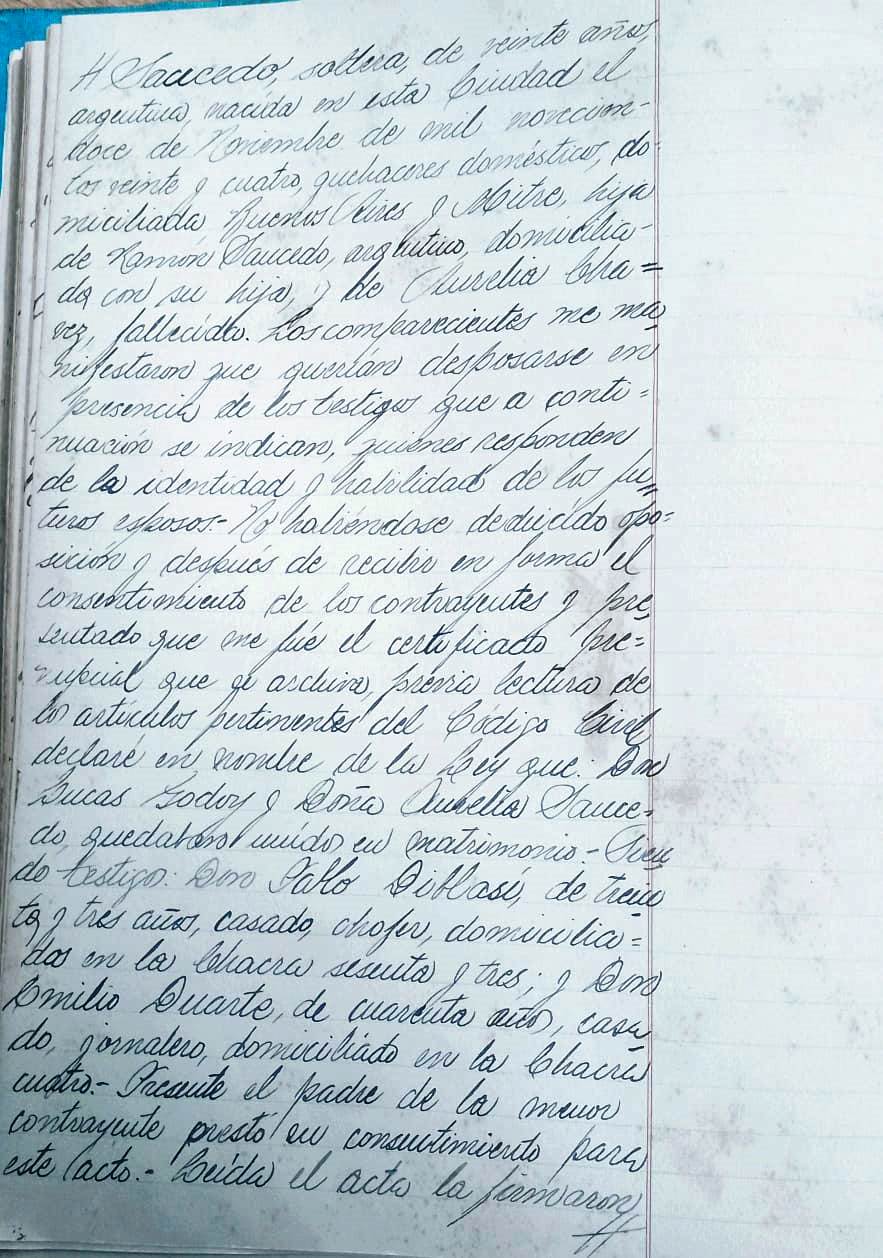 // Saucedo, soltera, de veinte años,
argentina, nacida en esta Ciudad el
doce de Noviembre de mil novecien-
tos veinte y cuatro, quehaceres domésticos, do-
miciliada Buenos Aires y Mitre, hija
de Ramón Saucedo, argentino, domicilia-
do con su hija, y de Aurelia Cha=
vez, fallecida. Los comparecientes me ma-
nifestaron que querían desposarse en
presencia de los testigos que a conti=
nuación se indican, quienes responden
de la identidad y habilidad de los fu=
turos esposos.- No habiéndose deducido opo=
sición y después de recibir en forma el
consentimiento de los contrayentes y pre-
sentado que me fué el certificado pre=
nupcial que se archiva, previa lectura de
los artículos pertinentes del Código Civil
declaré en nombre de la Ley que: Don
Lucas Godoy y Doña Aurelia Sauce-
do, quedaban unidos en matrimonio.- Sien-
do testigos: Don Pablo Diblasi, de trein-
ta y tres años, casado, chofer, domicilia=
dos en la Chacra sesenta y tres; y Don
Emilio Duarte, de cuarenta años, casa-
do, jornalero, domiciliado en la Chacra
cuatro.- Presente el padre de la menor
contrayente prestó su consentimiento para
este acto.- Leída el acta la firmaron
//